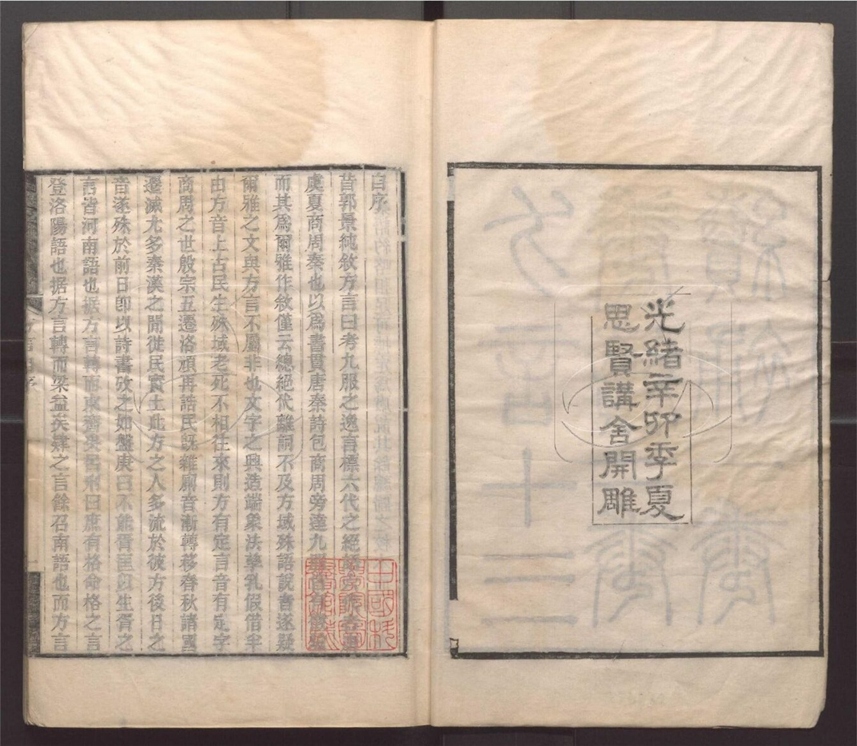 光緒辛卯季夏
思賢講舍開雕
自序
昔郭景純敘方言曰考九服之逸言標六代之絕語
虞夏商周秦也以爲書貫唐秦詩包商周旁達九
而其爲爾雅作敘僅云總絕代離詞不及方域殊語說者遂疑
爾雅之文與方言不屬非也文字之興造端象法孳乳假借半
由方音上古民生殊域老死不相往來則方有定言音有定字
商周之世殷宗五遷洛頑再誥民旣雜廁音漸轉移春秋諸國
遷滅尤多秦漢之閒徙民實土此方之人多流於彼方後日之
音遂殊於前日卽以詩書攷之如盤庚曰不能胥匡以生胥之
言皆河南語也据方言轉而東齊矣呂刑曰庶有格命格之言
登洛陽語也据方言轉而梁益矣肄之言餘召南語也而方言